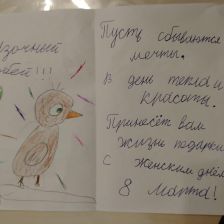 Пусть сбываются
мечты.
В день тепла и
красоты.
Принесёт вам
жизнь подарки
С женским днём
8 марта!